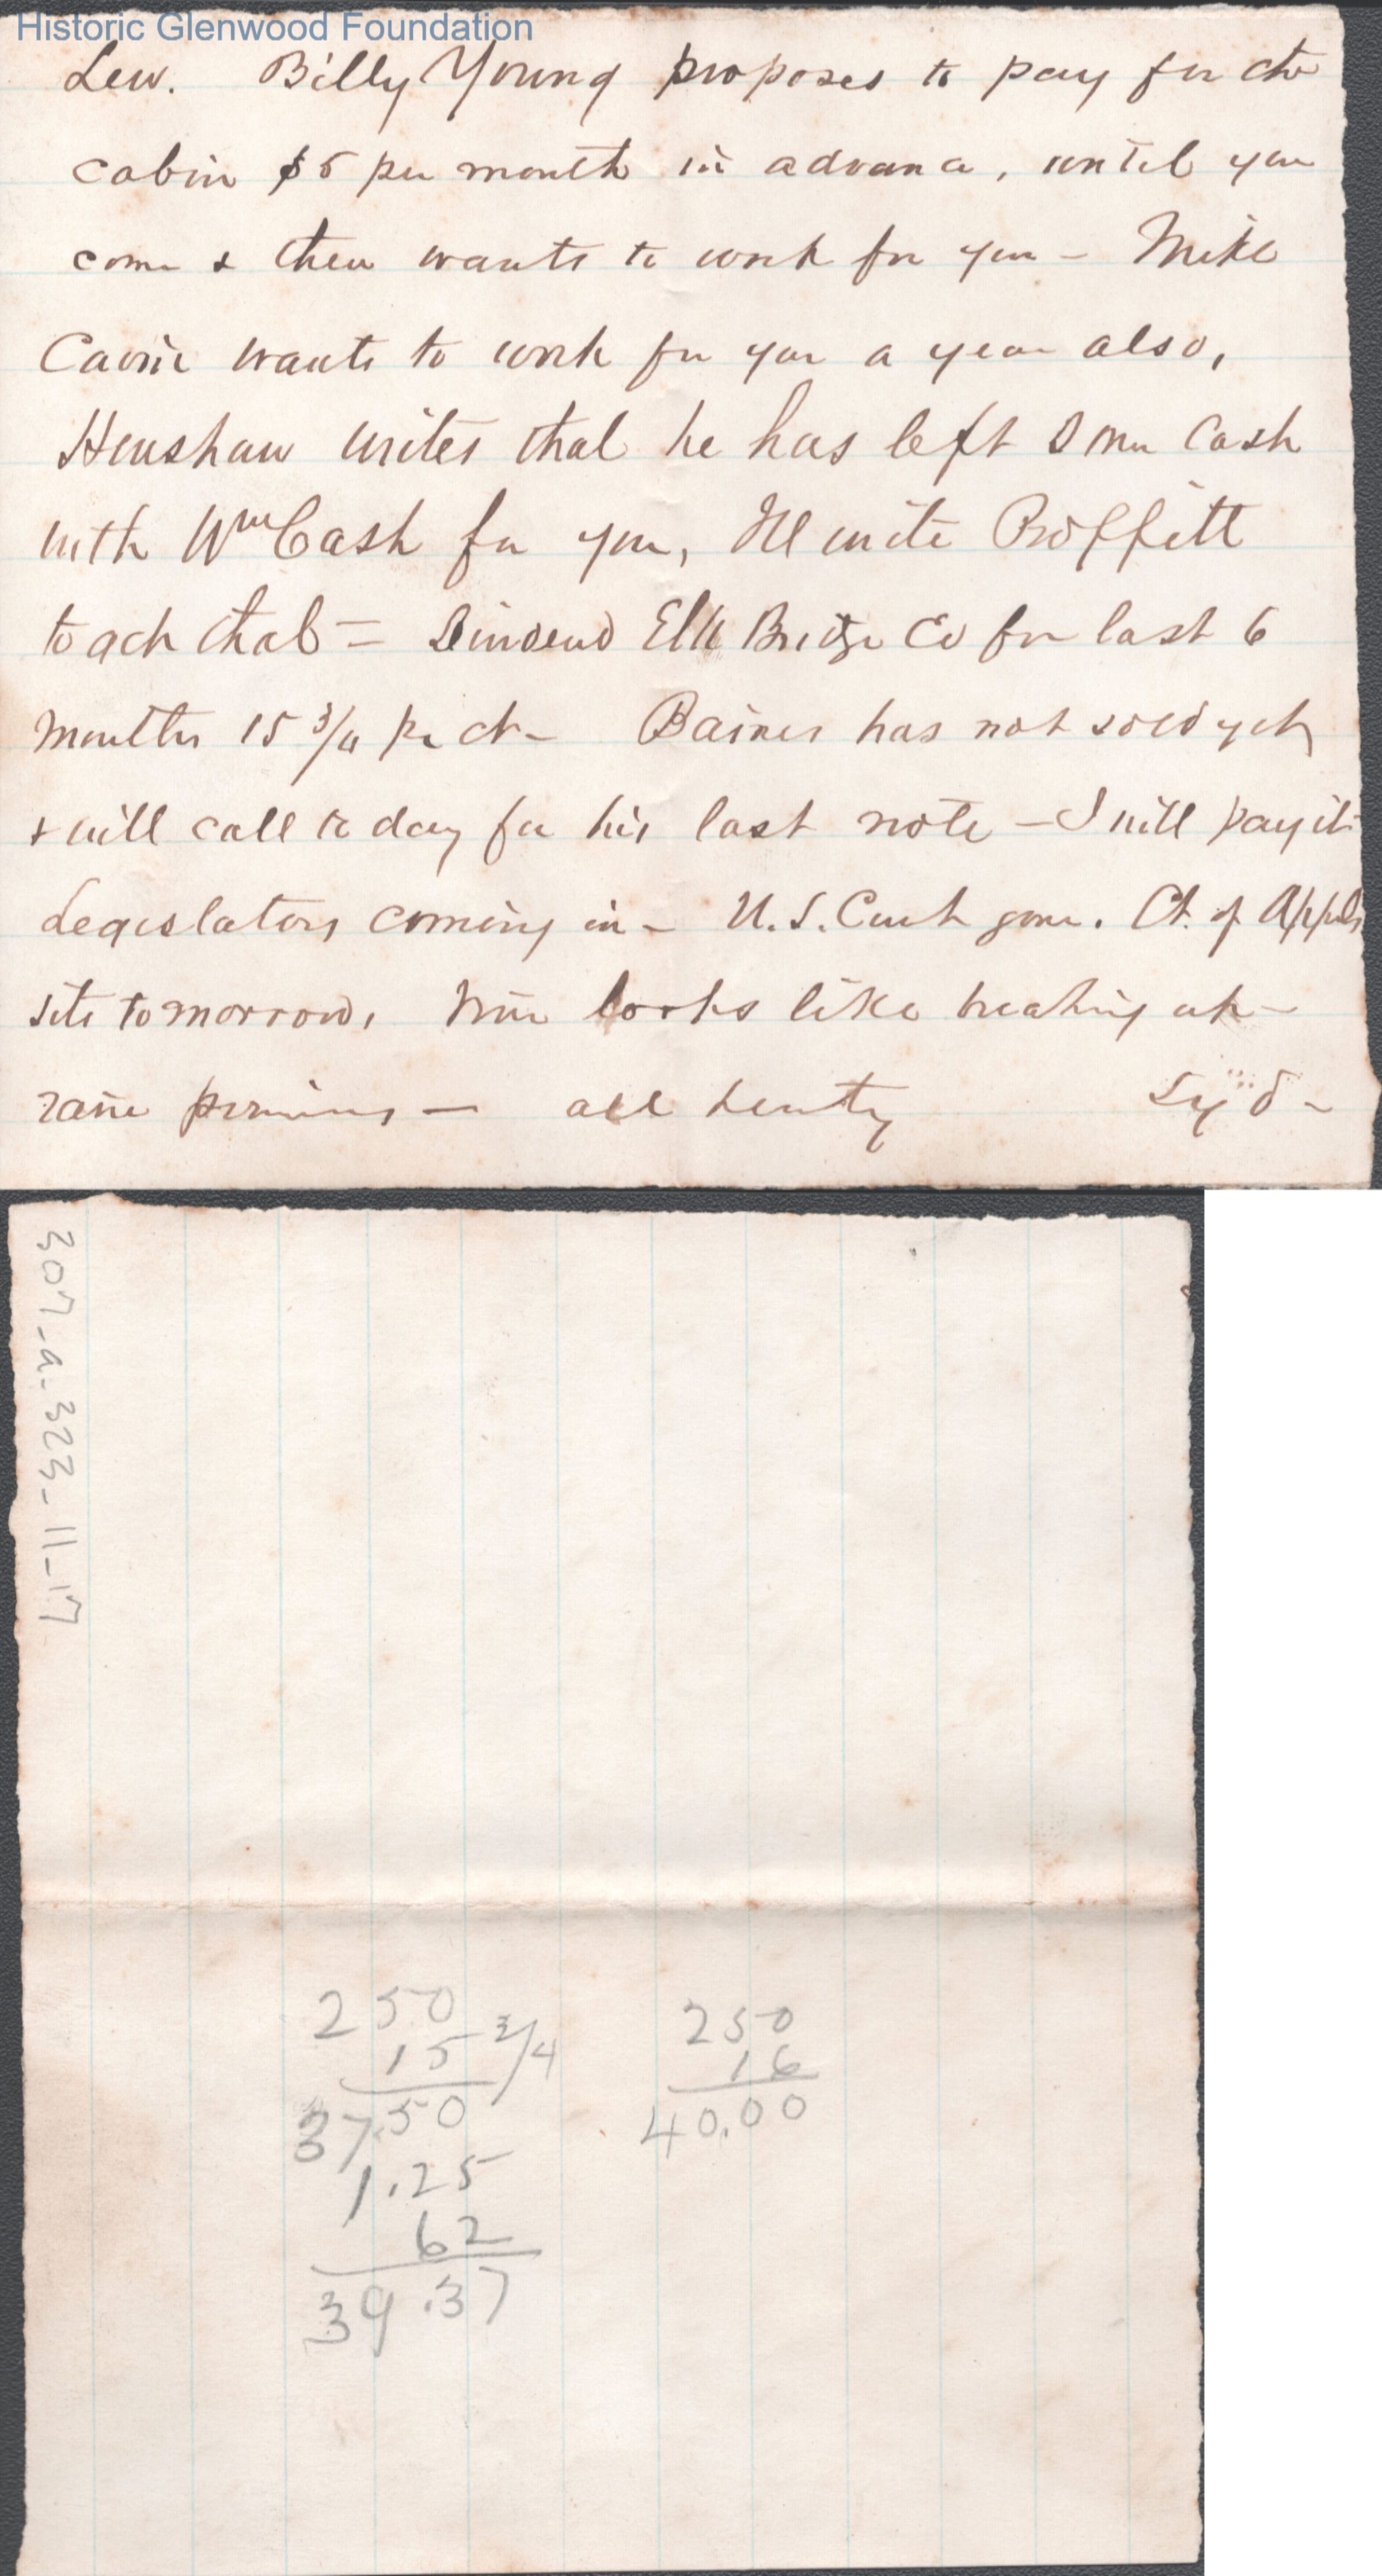 Historic Glenwood Foundation
Lew. Billy Young proposes to pay for the
cabin $5 per month in advance, until you
come & then wants to work for you – Mike
wants to work for you a year also,
Henshaw writes that he has left some Cash
with Wm Cash for you, Ill write Proffitt
to ack that = Dividend Elk Bridge Co for last 6
months 15 3/4 pr ct – has not sold yet
& will call to day for his last note – I will pay it
Legislators coming in – U.S. Court gone. Ct. of Appeals
sits tomorrow, looks like breaking up –
– all hearty Syd –
307-a.323-11-17
250
15 3/4
37.50
1.25
62
39.37
250
16
40.00